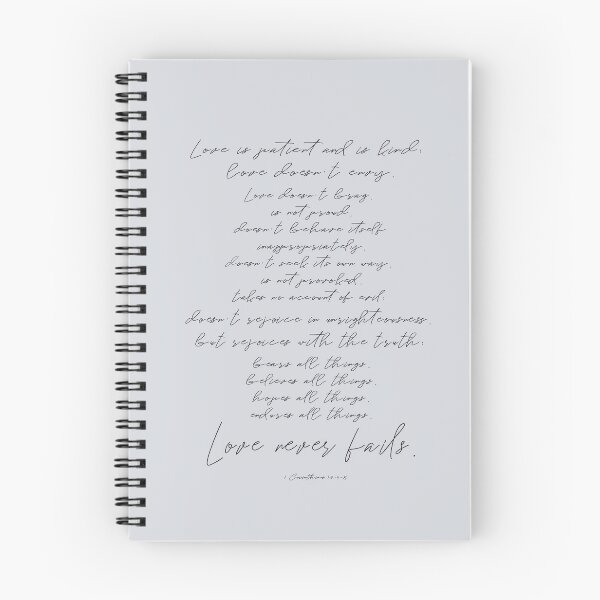 Love is patient and is kind;
love doesn't envy.
Love doesn't brag,
is not proud,
doesn't behave itself
inappropriately,
doesn't seek its own way,
is not provoked,
takes no account of evil;
doesn't rejoice in unrighteousness,
but rejoices with the truth;
bears all things,
believes all things,
hopes all things,
endures all things.
Love never fails.
1 Corinthians 13:4-8